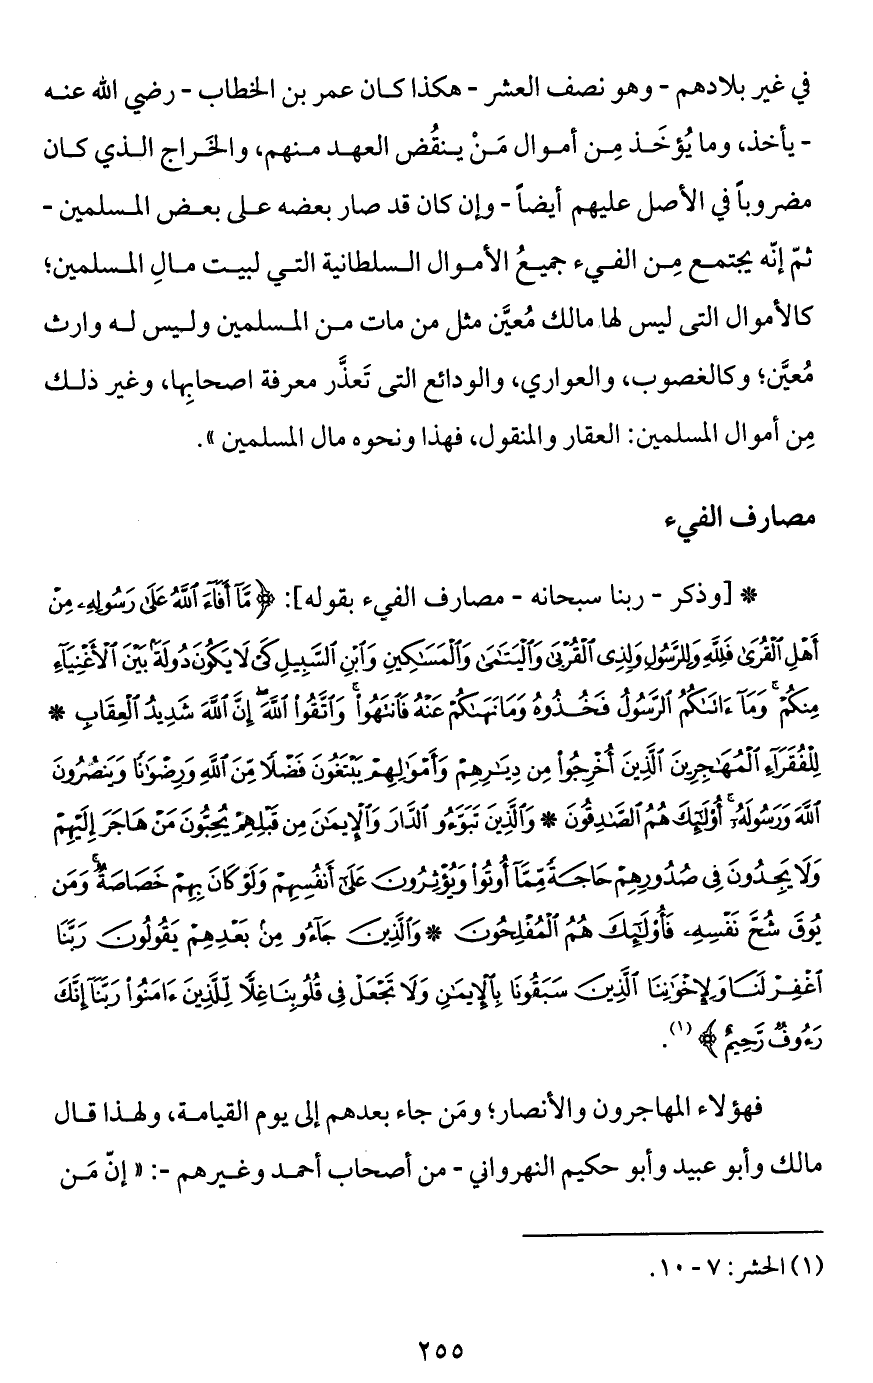 في غير بلادهم - وهو نصف العشر - هكذا كان عمر بن الخطاب - رضي الله عنه
- يأخذ، وما يُؤخَذ مِن أموال مَنْ ينقُض العهد منهم، والخَراج الذي كان
مضروباً في الأصل عليهم أيضاً - وإن كان قد صار بعضه على بعض المسلمين -
ثمّ إنّه يجتمع مِن الفيء جميعُ الأموال السلطانية التي لبيت مالِ المسلمين؛
كالأموال التى ليس لها مالك مُعيَّن مثل من مات من المسلمين وليس له وارث
مُعيَّن؛ وكالغصوب، والعواري، والودائع التى تَعذَّر معرفة اصحابِها، وغير ذلك
مِن أموال المسلمين: العقار والمنقول، فهذا ونحوه مال المسلمين ».
مصارف الفيء
* [وذكر - ربنا سبحانه - مصارف الفيء بقوله]: ﴿ مَّآ أَفَآءَ ٱللَّهُ عَلَىٰ رَسُولِهِۦ مِنْ
أَهْلِ ٱلْقُرَىٰ فَلِلَّهِ وَلِلرَّسُولِ وَلِذِى ٱلْقُرْبَىٰ وَٱلْيَتَٰمَىٰ وَٱلْمَسَٰكِينِ وَٱبْنِ ٱلسَّبِيلِ كَىْ لَا يَكُونَ دُولَةًۢ بَيْنَ ٱلْأَغْنِيَآءِ
مِنكُمْ ۚ وَمَآ ءَاتَىٰكُمُ ٱلرَّسُولُ فَخُذُوهُ وَمَا نَهَىٰكُمْ عَنْهُ فَٱنتَهُوا۟ ۚ وَٱتَّقُوا۟ ٱللَّهَ ۖ إِنَّ ٱللَّهَ شَدِيدُ ٱلْعِقَابِ *
لِلْفُقَرَآءِ ٱلْمُهَٰجِرِينَ ٱلَّذِينَ أُخْرِجُوا۟ مِن دِيَٰرِهِمْ وَأَمْوَٰلِهِمْ يَبْتَغُونَ فَضْلًا مِّنَ ٱللَّهِ وَرِضْوَٰنًا وَيَنصُرُونَ
ٱللَّهَ وَرَسُولَهُۥٓ ۚ أُو۟لَٰٓئِكَ هُمُ ٱلصَّٰدِقُونَ * وَٱلَّذِينَ تَبَوَّءُو ٱلدَّارَ وَٱلْإِيمَٰنَ مِن قَبْلِهِمْ يُحِبُّونَ مَنْ هَاجَرَ إِلَيْهِمْ
وَلَا يَجِدُونَ فِى صُدُورِهِمْ حَاجَةً مِّمَّآ أُوتُوا۟ وَيُؤْثِرُونَ عَلَىٰٓ أَنفُسِهِمْ وَلَوْ كَانَ بِهِمْ خَصَاصَةٌ ۚ وَمَن
يُوقَ شُحَّ نَفْسِهِۦ فَأُو۟لَٰٓئِكَ هُمُ ٱلْمُفْلِحُونَ * وَٱلَّذِينَ جَآءُو مِنۢ بَعْدِهِمْ يَقُولُونَ رَبَّنَا
ٱغْفِرْ لَنَا وَلِإِخْوَٰنِنَا ٱلَّذِينَ سَبَقُونَا بِٱلْإِيمَٰنِ وَلَا تَجْعَلْ فِى قُلُوبِنَا غِلًّا لِّلَّذِينَ ءَامَنُوا۟ رَبَّنَآ إِنَّكَ
رَءُوفٌ رَّحِيمٌ ﴾ (١).
فهؤلاء المهاجرون والأنصار؛ ومَن جاء بعدهم إلى يوم القيامة، ولهذا قال
مالك وأبو عبيد وأبو حكيم النهرواني - من أصحاب أحمد وغيرهم -: « إنّ مَن
(١) الحشر: ٧ - ١٠.
٢٥٥